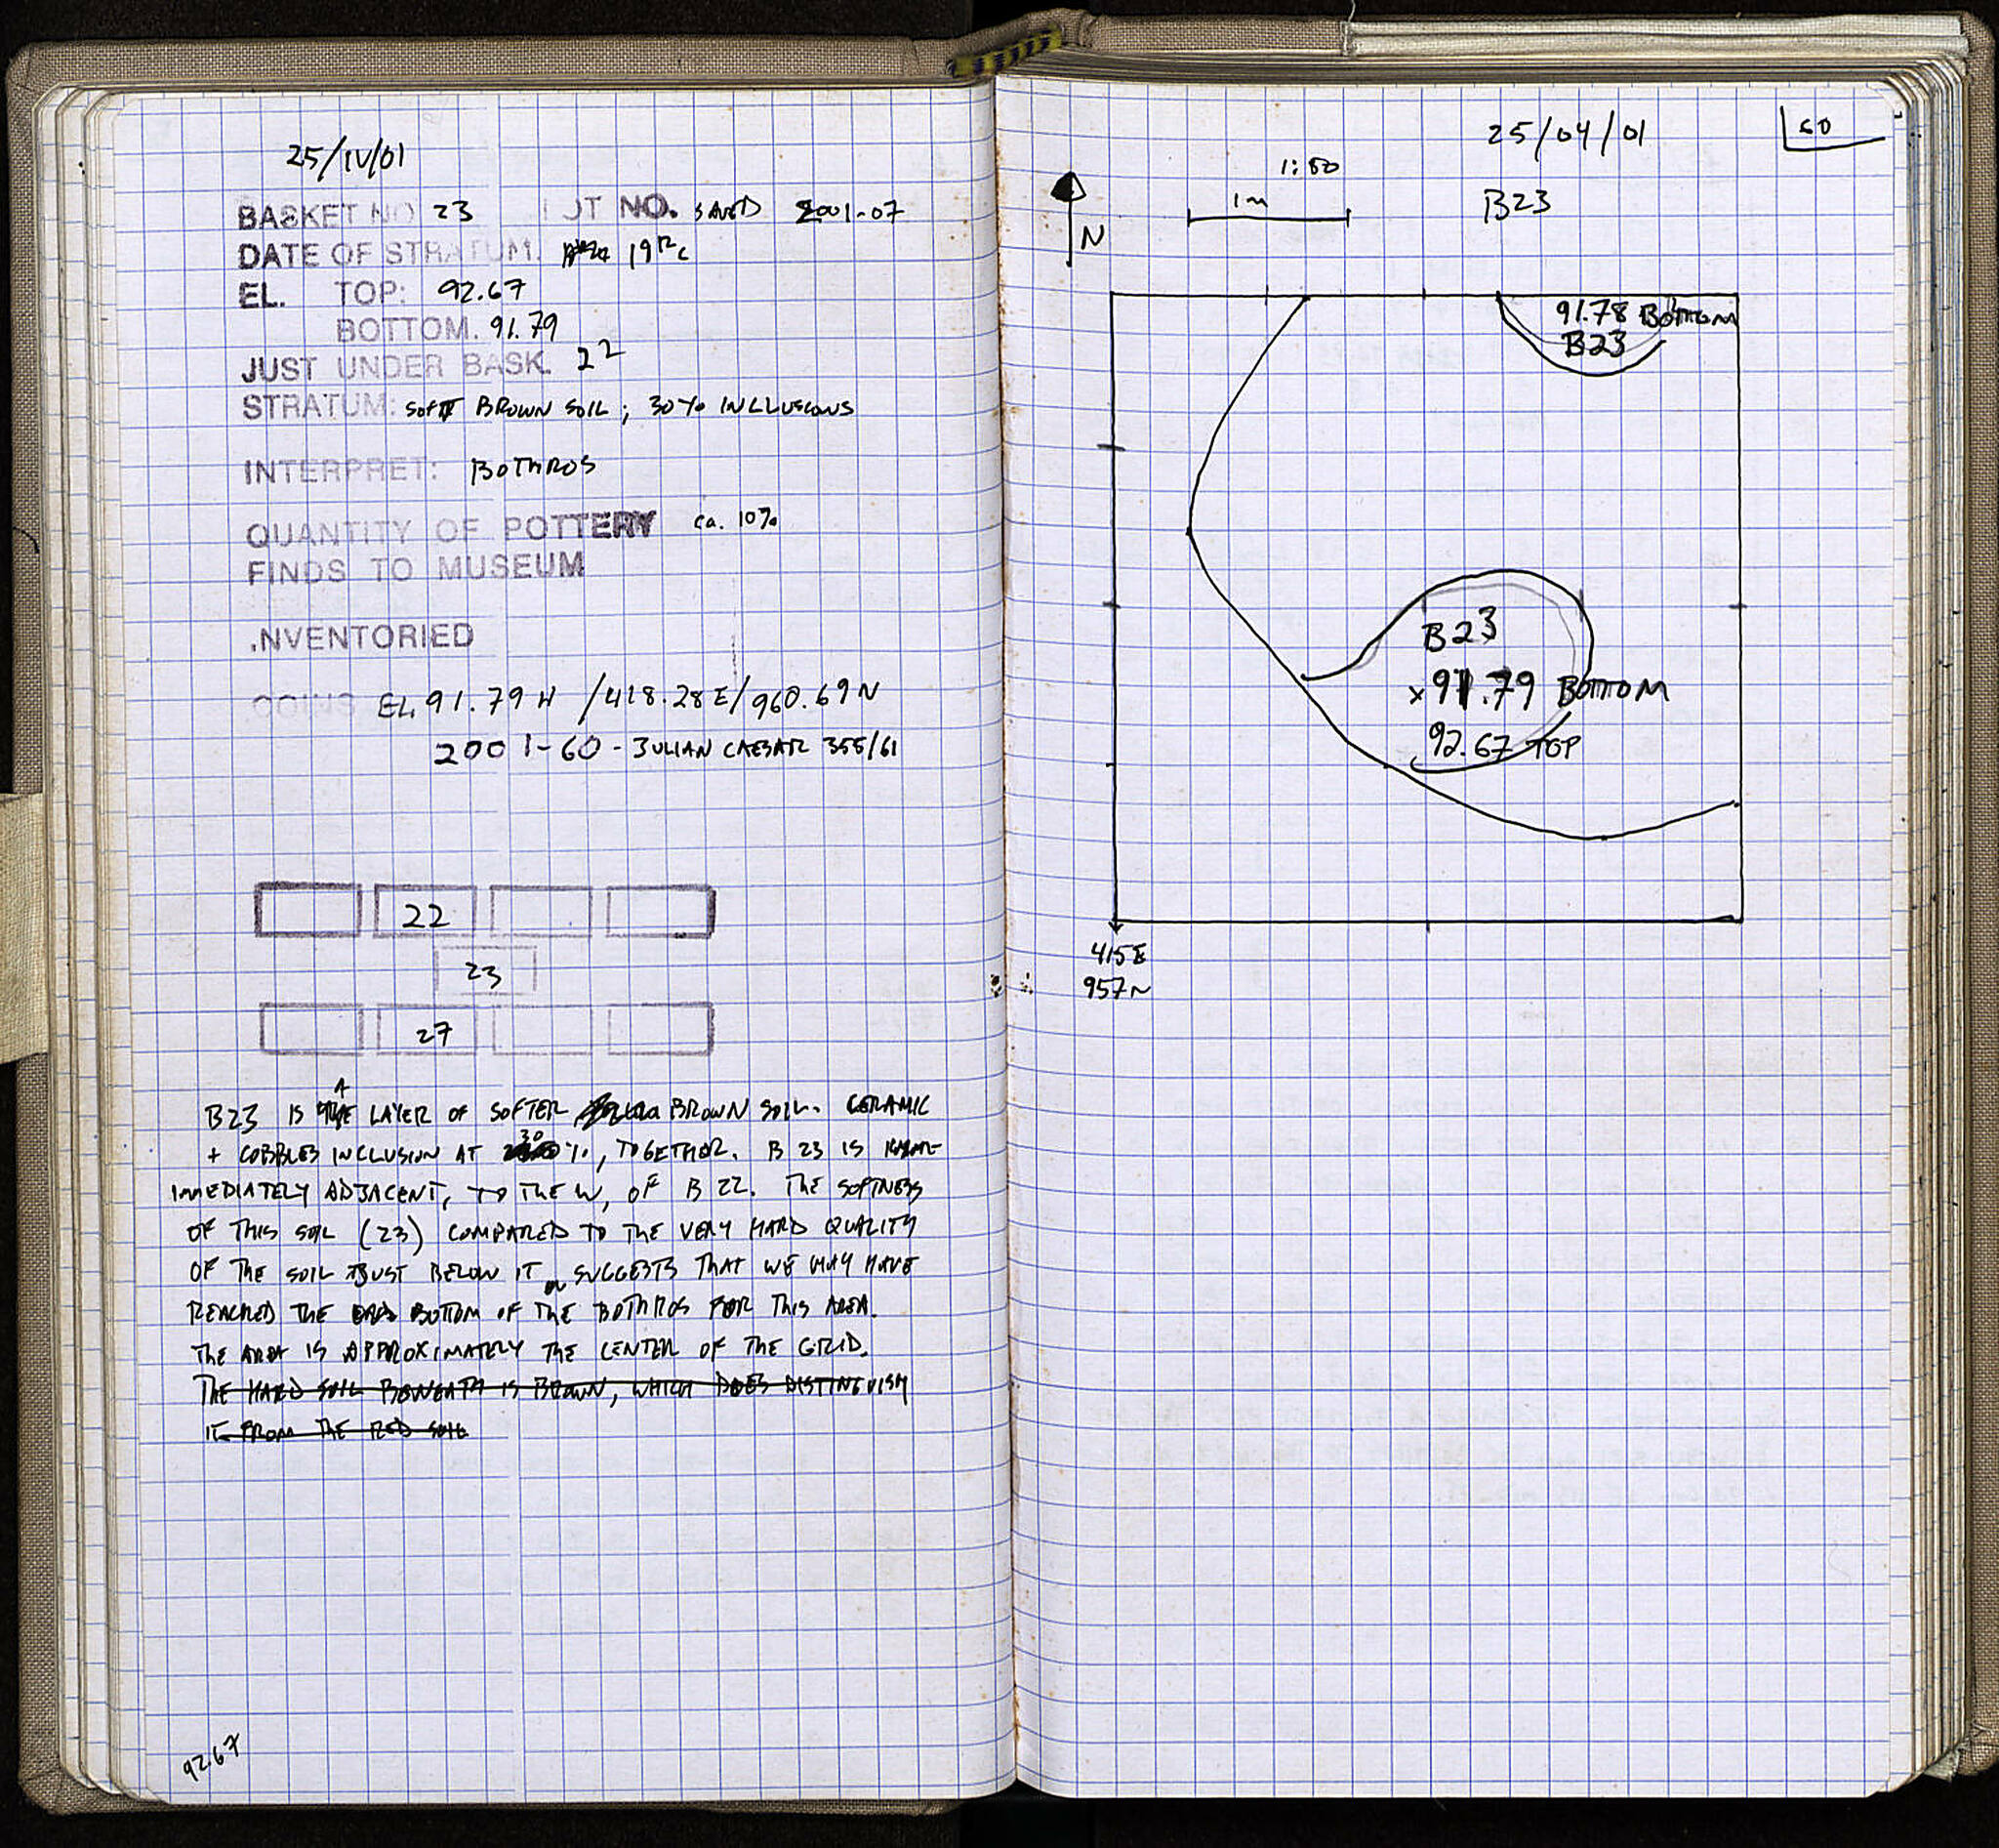 25/IV/01
BASKET NO 23 LOT NO. SAVED 2001-07
DATE OF STRATUM. 19th c
EL. TOP: 92.67
BOTTOM. 91.79
JUST UNDER BASK. 22
STRATUM: SOFT BROWN SOIL; 30% INCLUSIONS
INTERPRET: BOTHROS
QUANTITY OF POTTERY ca. 10%
FINDS TO MUSEUM
.NVENTORIED
COINS EL. 91.79 H / 418.28 E / 960.69 N
2001-60 - JULIAN CAESAR 355/61
22
23
27
B23 IS A LAYER OF SOFTER BROWN SOIL. CERAMIC
+ COBBLES INCLUSION AT 30 %, TOGETHER. B 23 IS
IMMEDIATELY ADJACENT, TO THE W, OF B 22. THE SOFTNESS
OF THIS SOIL (23) COMPARED TO THE VERY HARD QUALITY
OF THE SOIL JUST BELOW IT SUGGESTS THAT WE MAY HAVE
REACHED THE BOTTOM OF THE BOTHROS FOR THIS AREA.
THE AREA IS APPROXIMATELY THE CENTER OF THE GRID.
THE HARD SOIL BENEATH IS BROWN, WHICH DOES DISTINGUISH
IT FROM THE RED SOIL
92.67
25/04/01
60
1:50
1m
B23
N
91.78 BOTTOM
B23
B23
x 91.79 BOTTOM
92.67 TOP
415E
957N